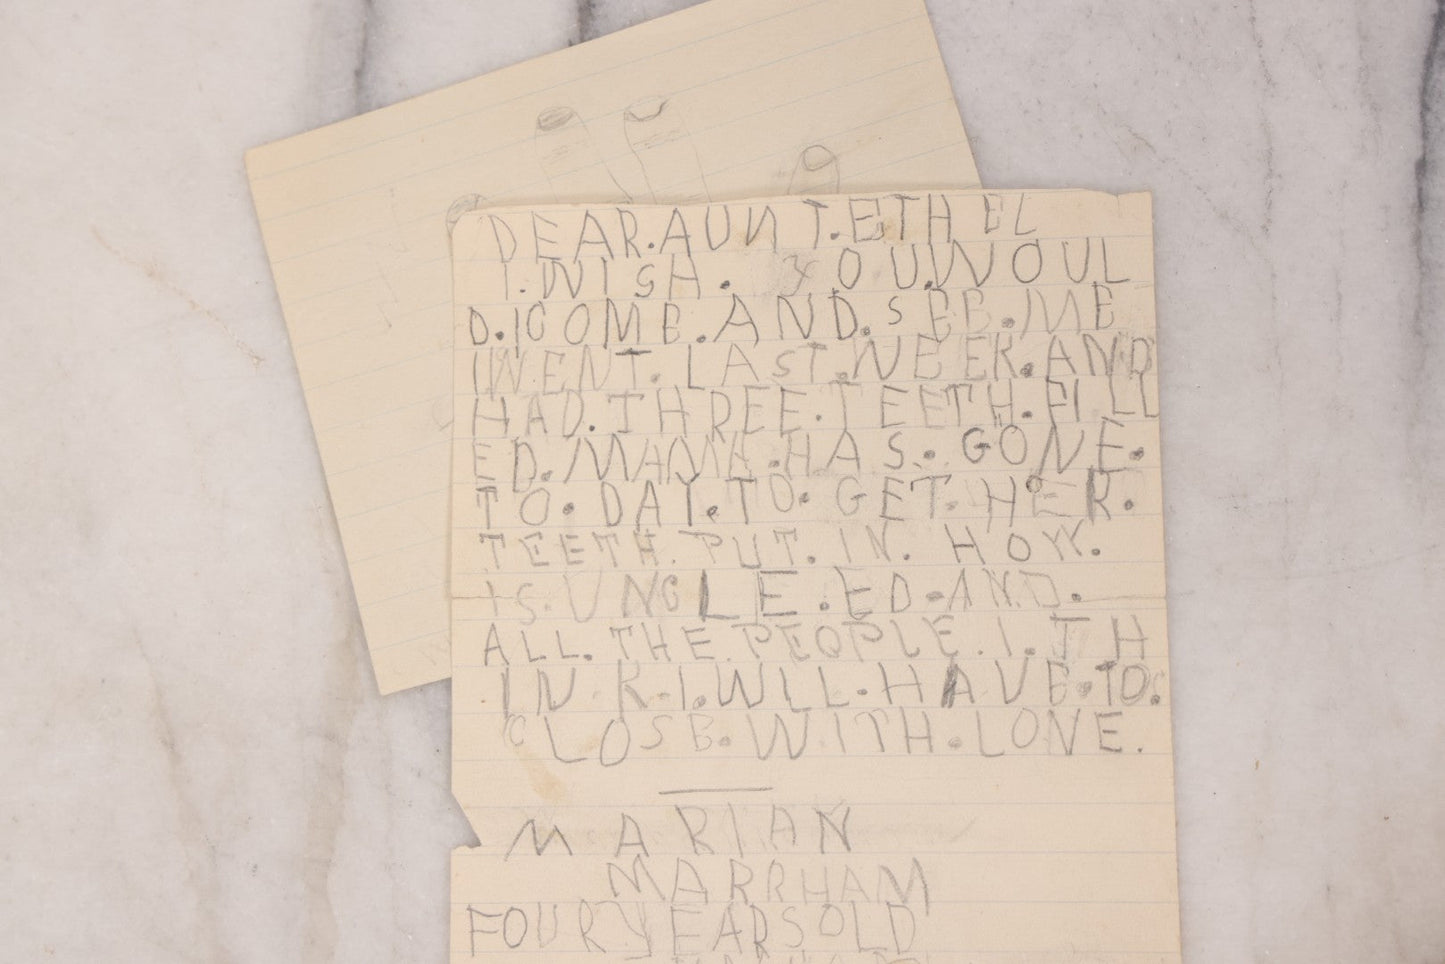 DEAR.AUNT.ETHEL
I.WISH. YOU.WOUL
D.COME.AND.SEE.ME
I WENT. LAST.WEEK.AND
HAD.THREE.TEETH.FILL
ED.MAMA.HAS. GONE.
TO. DAY.TO. GET. HER.
TEETH. PUT. IN. HOW.
IS.UNCLE.ED.AND.
ALL.THE.PEOPLE.I.TH
INK.I.WLL.HAVE.TO.
CLOSE.WITH.LOVE.
MARIAN
MARRHAM
FOUR YEARS OLD